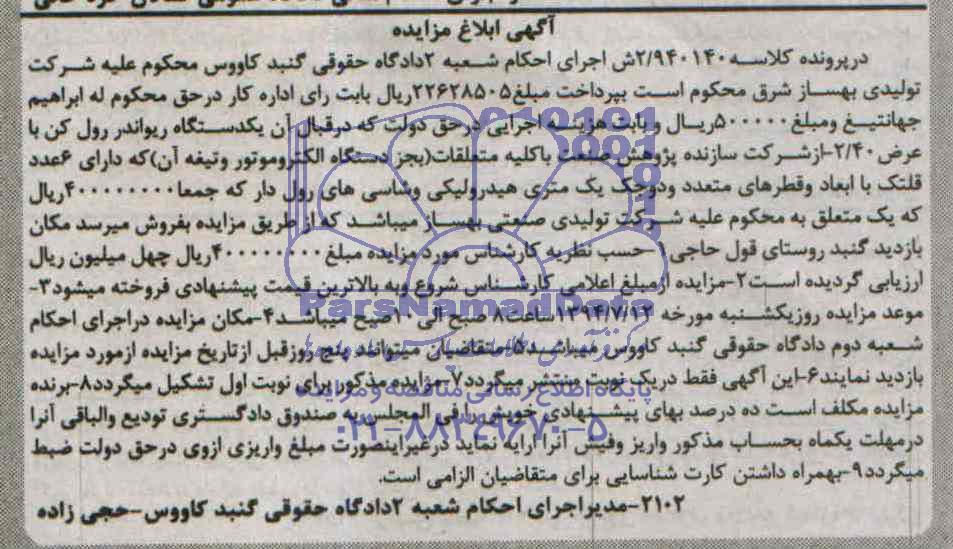 آگهی ابلاغ مزایده
درپرونده کلاسه ۲/۹۴۰۱۴۰ش اجرای احکام شعبه ۲دادگاه حقوقی گنبد کاووس محکوم علیه شرکت
تولیدی بهساز شرق محکوم است بپرداخت مبلغ۲۲۶۲۸۵۰۵ریال بابت رای اداره کار درحق محکوم له ابراهیم
جهانتیغ ومبلغ۵۰۰۰۰۰ریال و بابت هزینه اجرایی درحق دولت که درقبال آن یکدستگاه ریواندر رول کن با
عرض۲/۴۰-ازشرکت سازنده پژوهش صنعت باکلیه متعلقات(بجز دستگاه الکتروموتور وتیغه آن)که دارای ۶عدد
قلتک با ابعاد وقطرهای متعدد ودوجک یک متری هیدرولیکی وشاسی های رول دار که جمعا۴۰۰۰۰۰۰۰۰ریال
که یک متعلق به محکوم علیه شرکت تولیدی صنعتی بهساز میباشد که از طریق مزایده بفروش میرسد مکان
بازدید گنبد روستای قول حاجی۱-حسب نظریه کارشناس مورد مزایده مبلغ۴۰۰۰۰۰۰۰ریال چهل میلیون ریال
ارزیابی گردیده است۲-مزایده ازمبلغ اعلامی کارشناس شروع وبه بالاترین قیمت پیشنهادی فروخته میشود۳-
موعد مزایده روزیکشنبه مورخه ۱۳۹۴/۷/۱۲ساعت۸ صبح الی ۱۰صبح میباشد۴-مکان مزایده دراجرای احکام
شعبه دوم دادگاه حقوقی گنبد کاووس میباشد۵-متقاضیان میتوانند پنج روزقبل ازتاریخ مزایده ازمورد مزایده
بازدید نمایند۶-این آگهی فقط دریک نوبت منتشر میگردد۷-مزایده مذکور برای نوبت اول تشکیل میگردد۸-برنده
مزایده مکلف است ده درصد بهای پیشنهادی خویش رافی المجلس به صندوق دادگستری تودیع والباقی آنرا
درمهلت یکماه بحساب مذکور واریز وفیش آنرا ارایه نماید درغیراینصورت مبلغ واریزی ازوی درحق دولت ضبط
میگردد۹-بهمراه داشتن کارت شناسایی برای متقاضیان الزامی است.
۲۱۰۲-مدیراجرای احکام شعبه ۲دادگاه حقوقی گنبد کاووس-حجی زاده
ParsNamadData
پایگاه اطلاع رسانی مناقصه و مزایده
۰۲۱-۸۸۳۴۹۶۷۰-۵